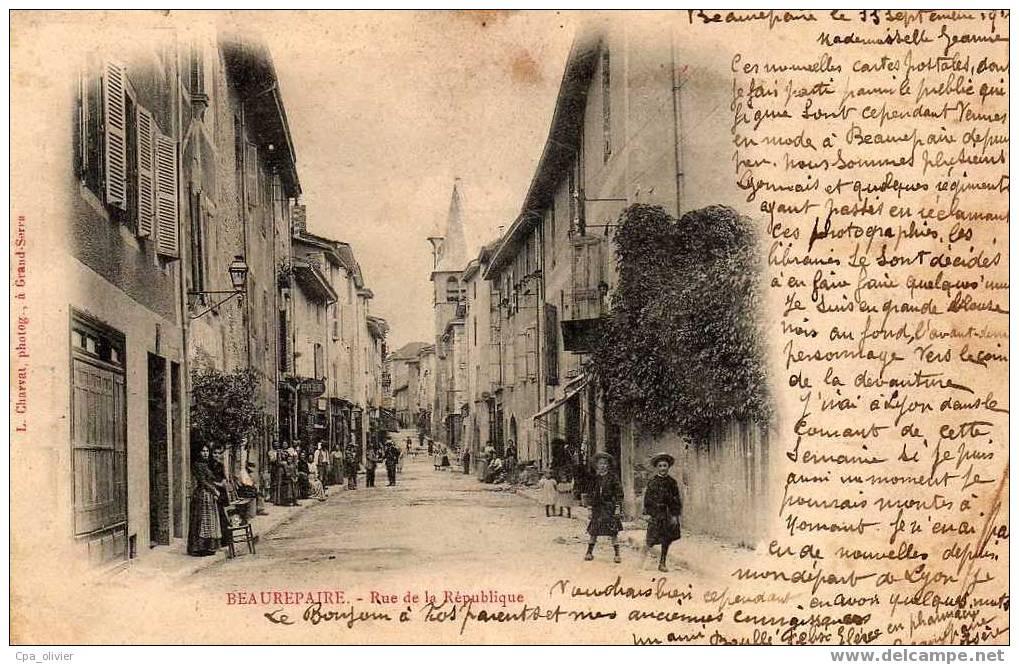 Beaurepaire le 13 Septembre 19
Mademoiselle Jeanne
Ces nouvelles cartes postales, dont
je fais parti parmi le public qui
figure sont cependant venues
en mode à Beaurepaire depuis
peu. Nous sommes plusieurs
Lyonnais et quelques régiments
ayant passés en réclamant
ces photographies, les
libraires se sont décidés
à en faire faire quelques unes
Je suis en grande blouse
noire au fond, l'avant dernier
personnage vers le coin
de la devanture
J'irai à Lyon dans le
courant de cette
semaine si je puis
avoir un moment je
pourrais monter à
Je n'en ai pas
eu de nouvelles depuis
mon départ de Lyon je
voudrais bien cependant en avoir quelques mots
Le Bonjour à vos parents et mes anciennes connaissances
un ami Élève en pharmacie
Beaurepaire
Isère
L. Charvat, photog., à Grand-Serre
BEAUREPAIRE. - Rue de la République
Cpa_olivier
http://www.delcampe.net